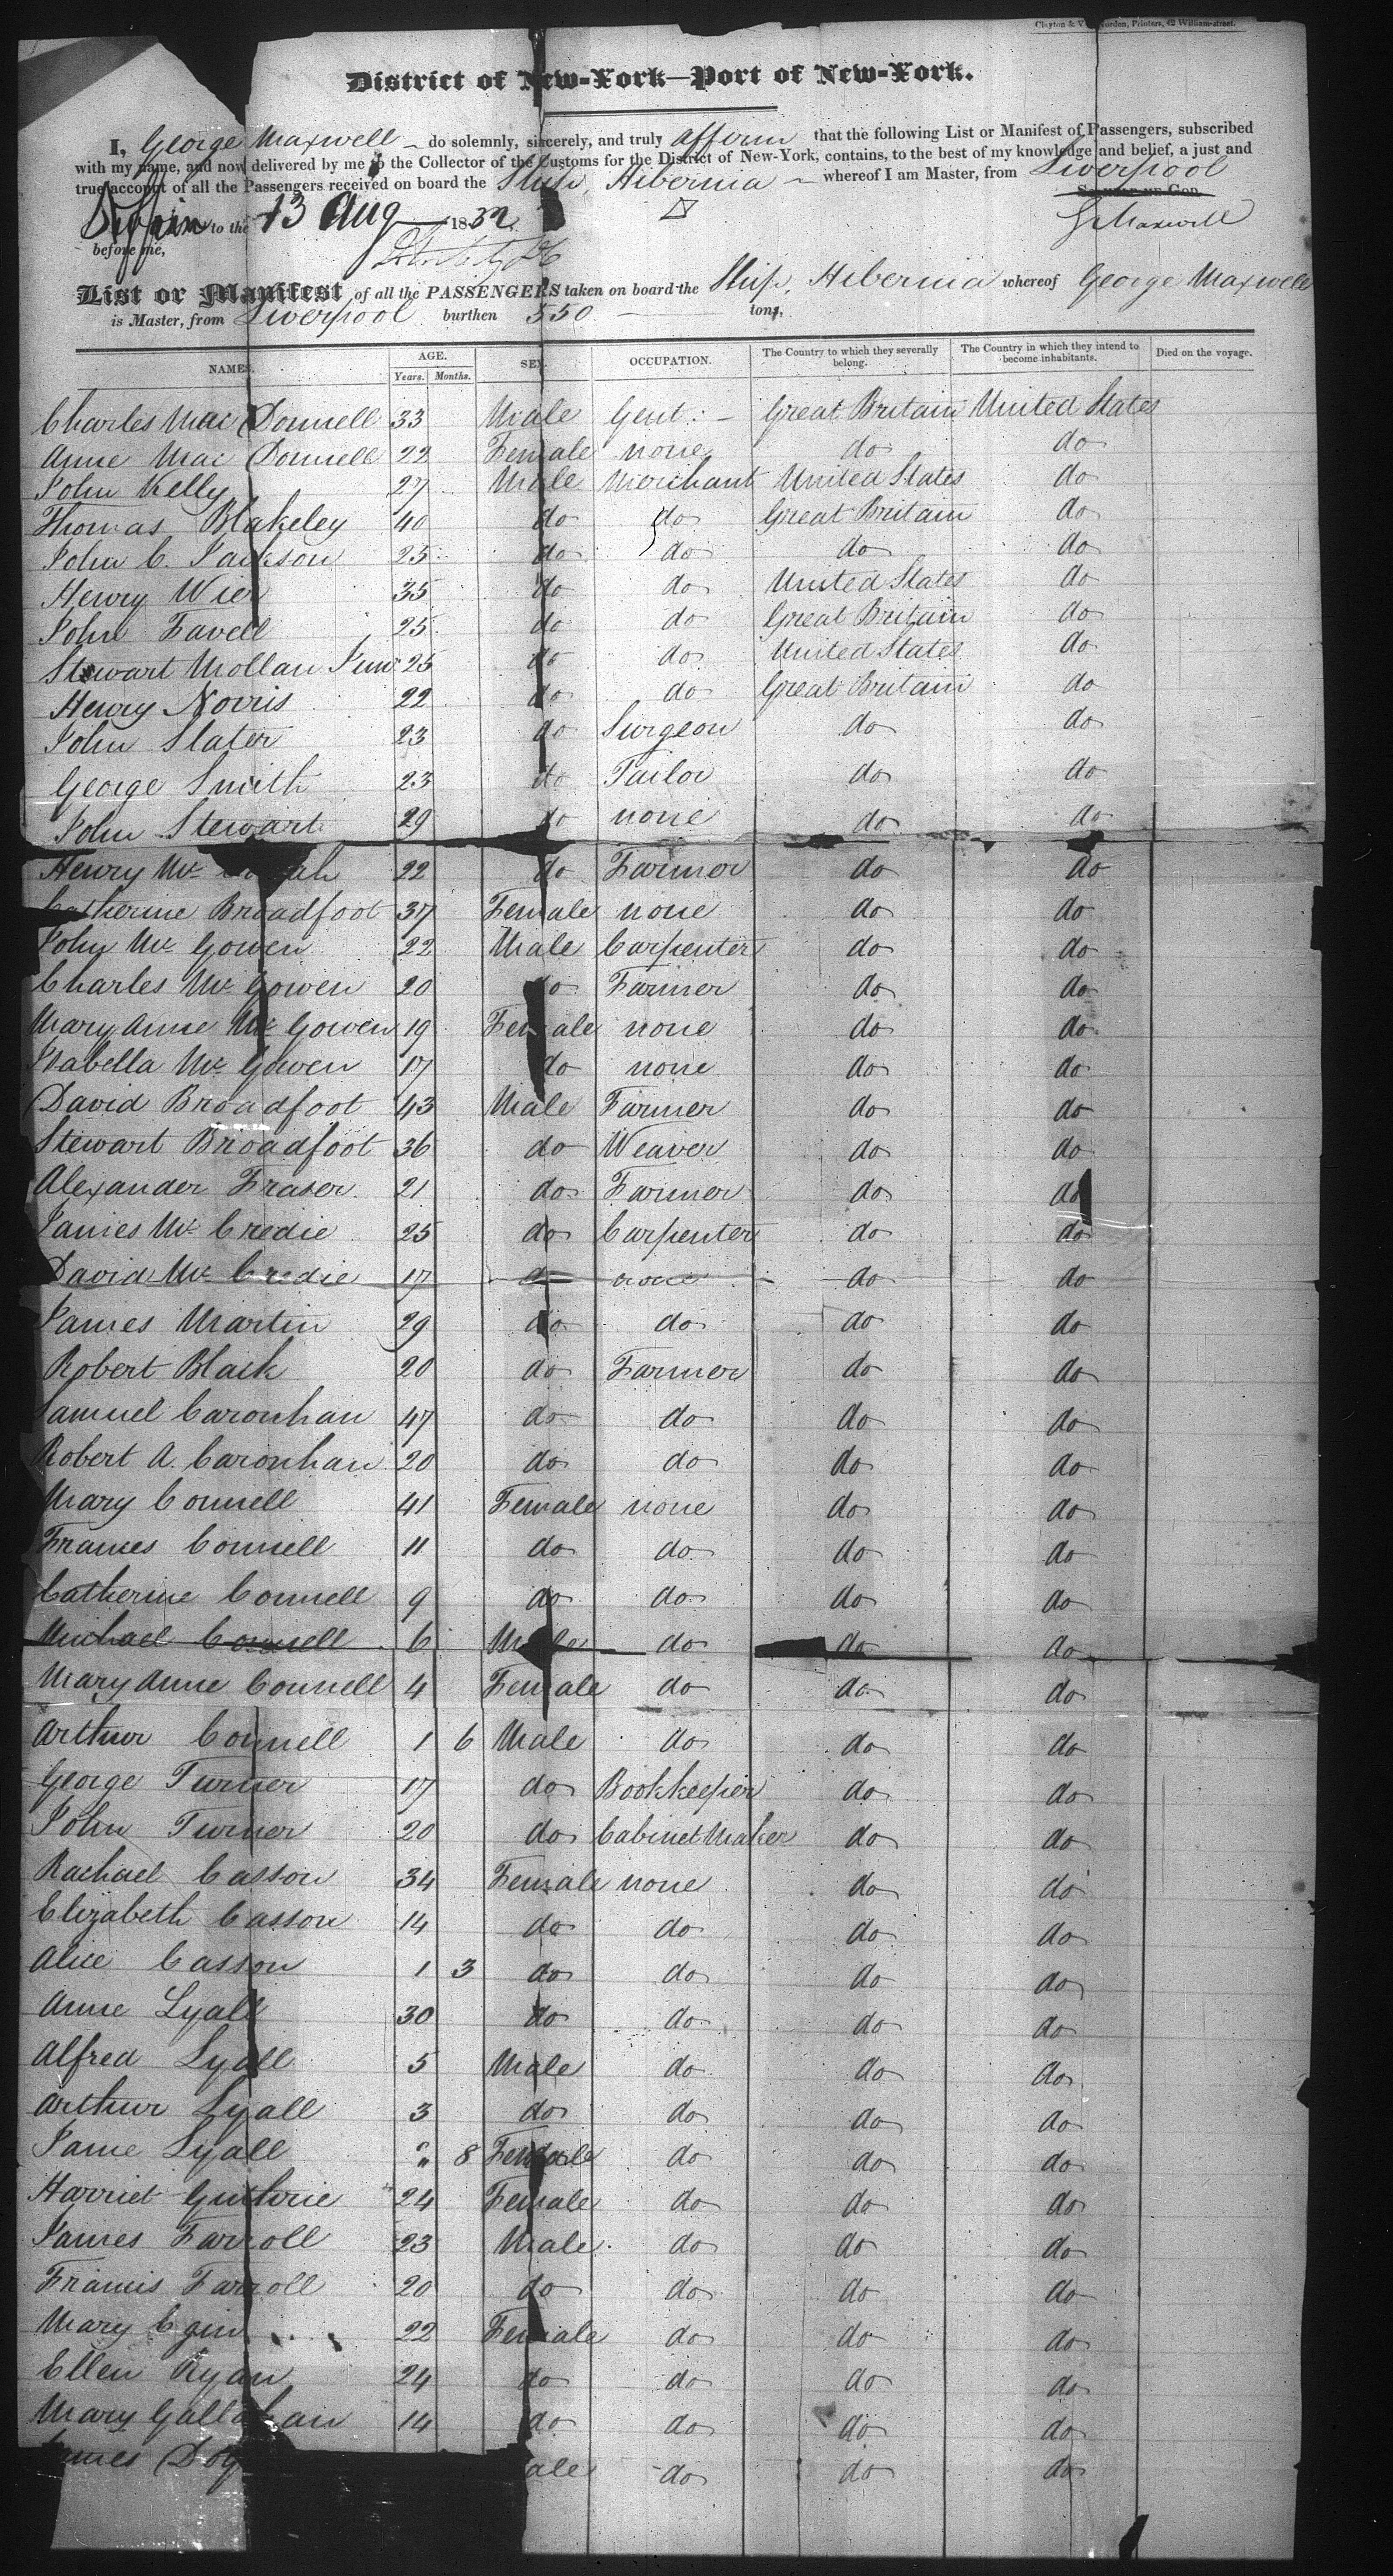 Clayton & V Norden, Printers, 42 William-street.
District of New-York—Port of New-York.
I, George Maxwell do solemnly, sincerely, and truly affirm that the following List or Manifest of Passengers, subscribed
with my name, and now delivered by me to the Collector of the Customs for the District of New-York, contains, to the best of my knowledge and belief, a just and
true account of all the Passengers received on board the Ship, Hibernia whereof I am Master, from Liverpool
to the 13 Aug 1832 So help me God.
before me, G Maxwell
List or Manifest of all the PASSENGERS taken on board the Ship, Hibernia whereof George Maxwell
is Master, from Liverpool burthen 550 tons,
NAMES. AGE. Years. Months. SEX. OCCUPATION. The Country to which they severally belong. The Country in which they intend to become inhabitants. Died on the voyage.
Charles Mac Donnell 33 Male Gent: Great Britain United States
Anne Mac Donnell 22 Female none do do
John Kelly 27 Male Merchant United States do
Thomas Blakeley 40 do do Great Britain do
John C. Jackson 25 do do do do
Henry Wier 35 do do United States do
John Favell 25 do do Great Britain do
Stewart Mollan Junr 25 do do United States do
Henry Norris 22 do do Great Britain do
John Slater 23 do Surgeon do do
George Smith 23 do Tailor do do
John Stewart 29 do none do do
Henry Mc 22 do Farmer do do
Catherine Broadfoot 37 Female none do do
John Mc Gowen 22 Male Carpenter do do
Charles Mc Gowen 20 do Farmer do do
Mary Anne Mc Gowen 19 Female none do do
Isabella Mc Gowen 17 do none do do
David Broadfoot 43 Male Farmer do do
Stewart Broadfoot 36 do Weaver do do
Alexander Fraser 21 do Farmer do do
James Mc Credie 25 do Carpenter do do
David Mc Credie 17 do none do do
James Martin 29 do do do do
Robert Black 20 do Farmer do do
Samuel Caronhan 47 do do do do
Robert A. Caronhan 20 do do do do
Mary Connell 41 Female none do do
Frances Connell 11 do do do do
Catherine Connell 9 do do do do
Michael Connell 6 Male do do do
Mary Anne Connell 4 Female do do do
Arthur Connell 1 6 Male do do do
George Turner 17 do Bookkeeper do do
John Turner 20 do Cabinet Maker do do
Rachael Casson 34 Female none do do
Elizabeth Casson 14 do do do do
Alice Casson 1 3 do do do do
Anne Lyall 30 do do do do
Alfred Lyall 5 Male do do do
Arthur Lyall 3 do do do do
Jane Lyall " 8 Female do do do
Harriet Guthrie 24 Female do do do
James Farroll 23 Male do do do
Francis Farroll 20 do do do do
Mary Egin 22 Female do do do
Ellen Ryan 24 do do do do
Mary Gallahan 14 do do do do
James Doy ale do do do